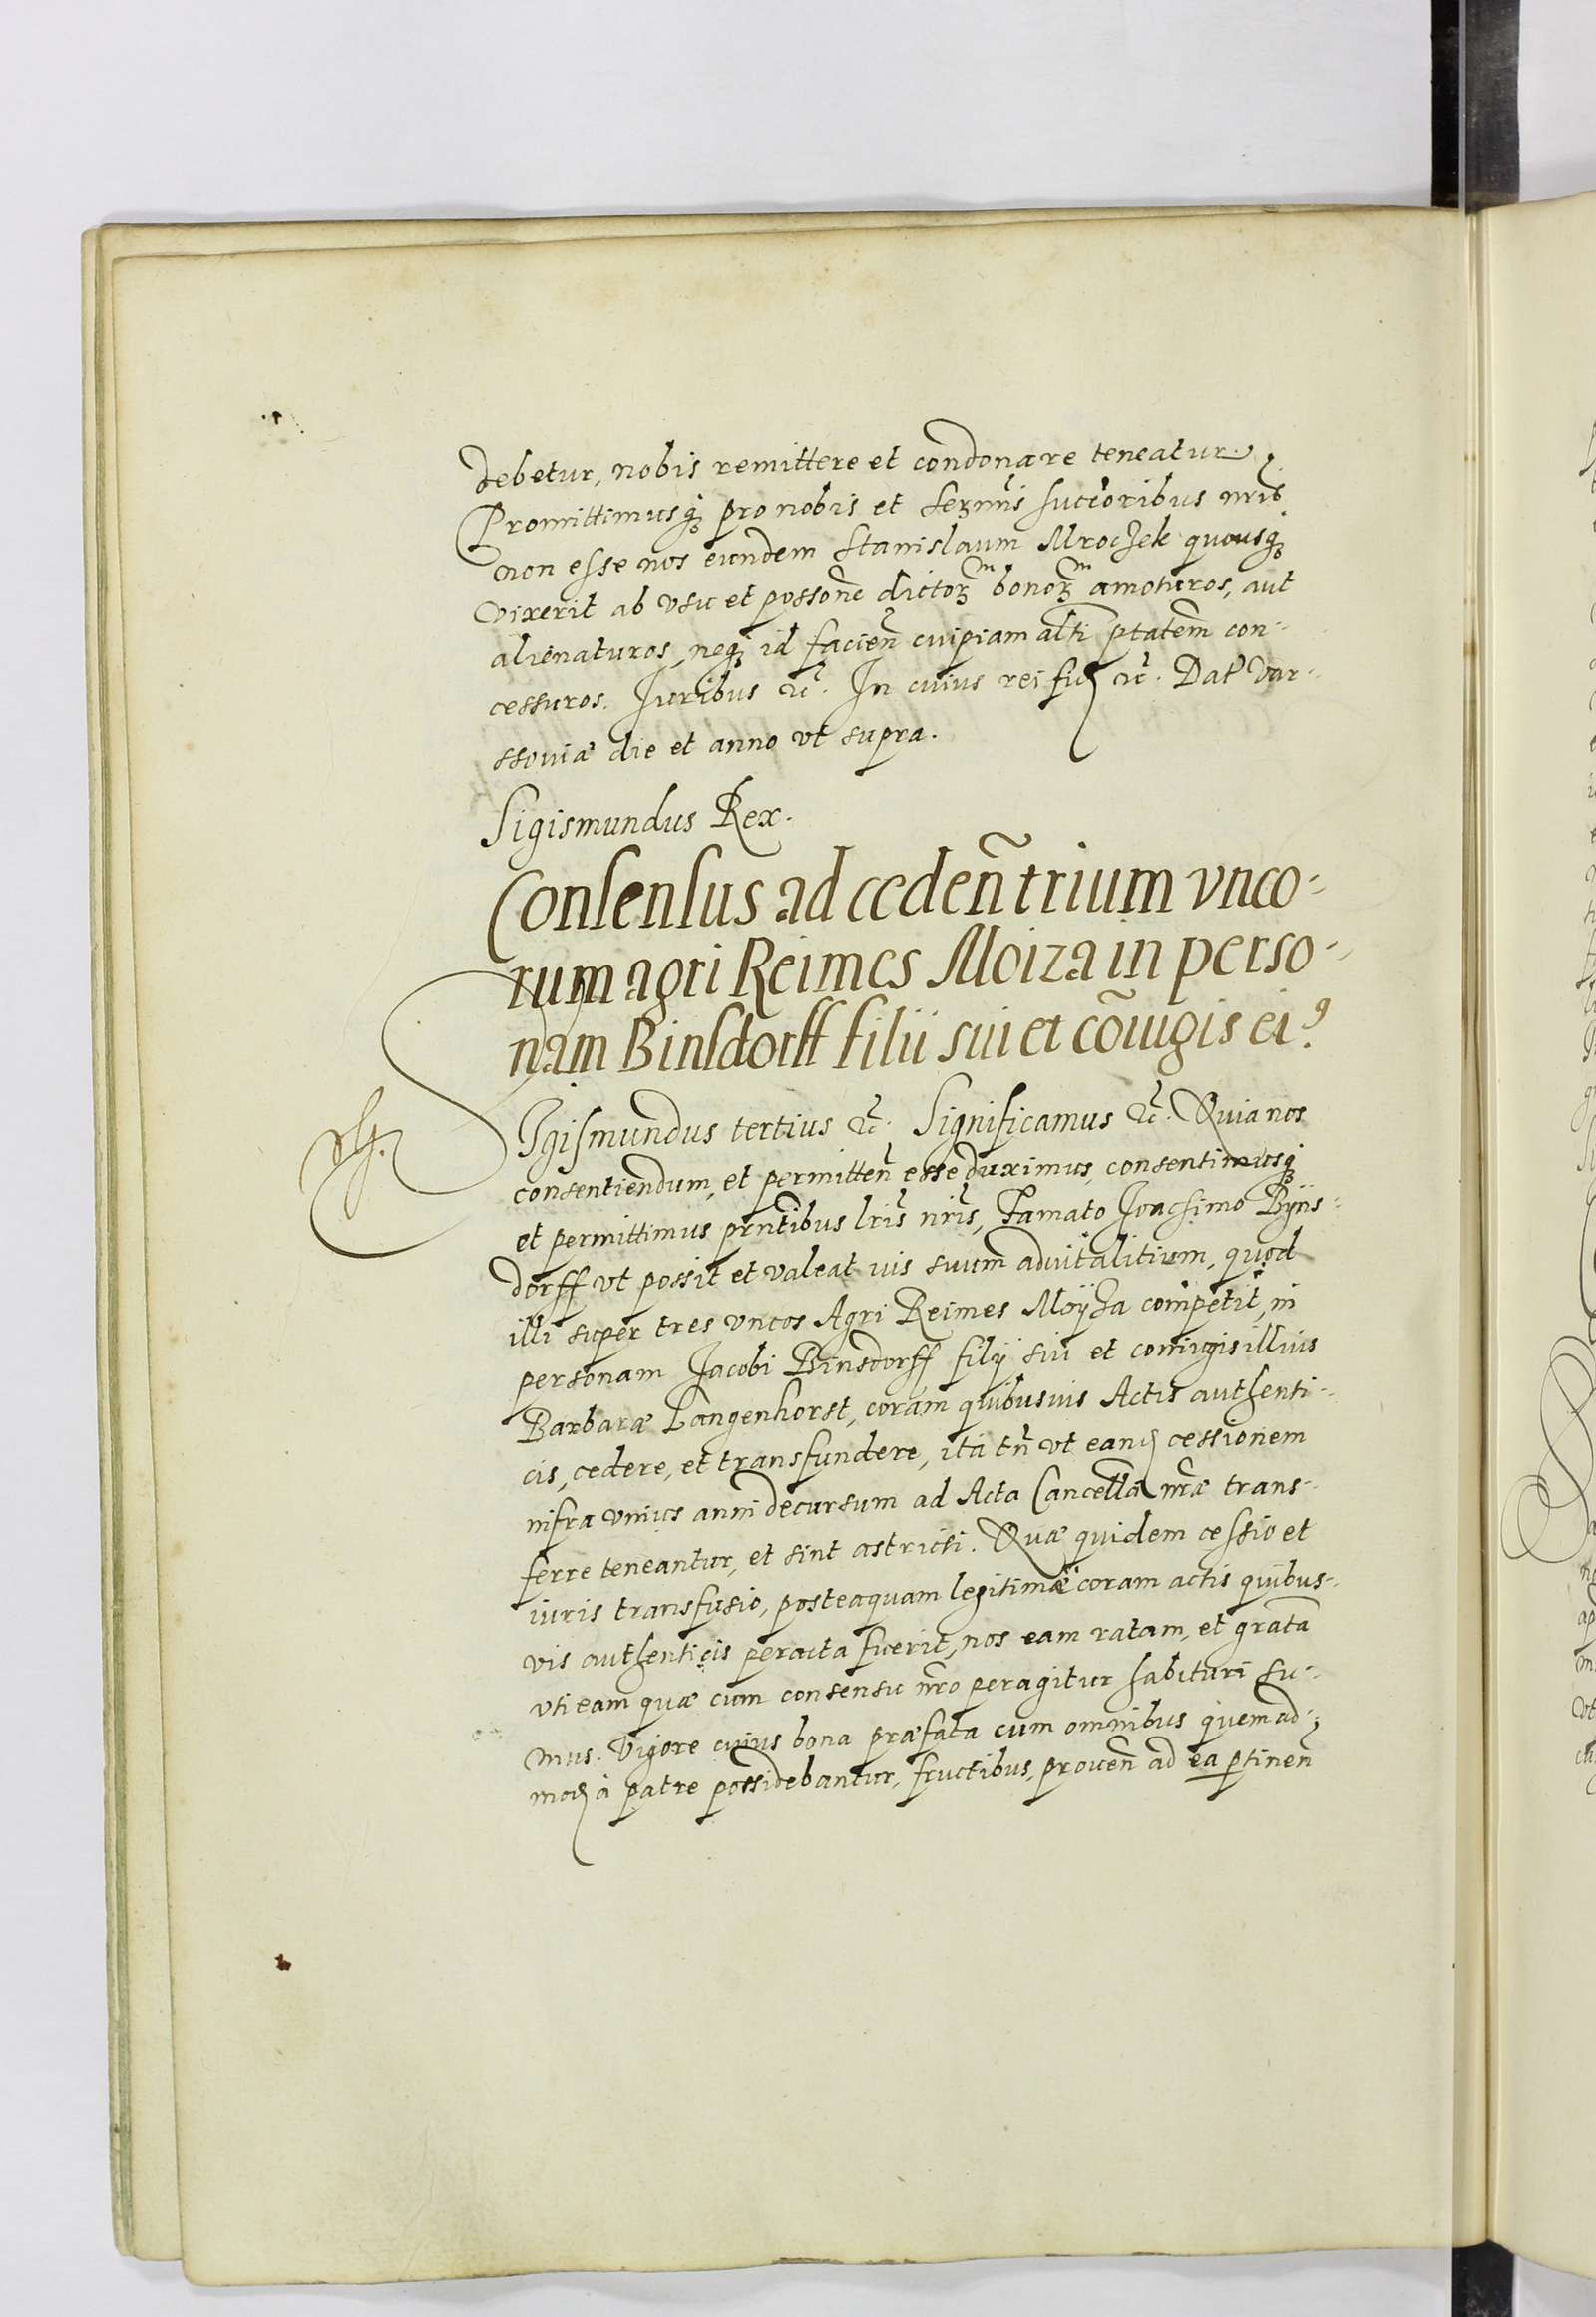 debetur, nobis remittere et condonare teneatur.
Promittimusq́ꝫ pro nobis et serm̃is succ̃oribus nr̃is
non esse nos eundem Stanislaum Mroczek quousqꝫ
vixerit ab vsu et possone dictoꝝ bonoꝝ amoturos, aut
alienaturos, neqꝫ id facień cuipiam alti ptatem con-
cessuros. Iuribus ꝛc̃. In cuius rei fid ꝛc̃. Dat Var-
ssoviæ die et anno vt supra.
Sigismundus Rex.
Consensus ad cedeñ trium vnco-
rum agri Reimes Moiza in perso-
nam Binsdorff filii sui et cõiugis eiꝰ
Sigismundus tertius ꝛc̃. Significamus ꝛc̃. Quia nos
consentiendum, et permitteñ esse duximus, consentimusqꝫ
et permittimus prñtibus lr̃is nr̃is, Famato Joachimo Byns-
dorff vt possit et valeat ius suum aduitalitium, quod
illi super tres vncos Agri Reimes Moyza competit, in
personam Jacobi Binsdorff filij sui et coniugis illius
Barbaræ Langenhorst, coram quibusuis Actis authenti-
cis, cedere, et transfundere, ita tñ vt eand cessionem
infra vnius anni decursum ad Acta Cancella nr̃æ trans-
ferre teneantur, et sint astricti. Quæ quidem cessio et
iuris transfusio, posteaquam legitimæ coram actis quibus-
vis authenticis peracta fuerit, nos eam ratam, et gratã
vti eam quæ cum consensu nr̃o peragitur habituri su-
mus. Vigore cuius bona præfata cum omnibus quemad-
mod à patre possidebantur, fructibus, proueñ ad ea ptineñ